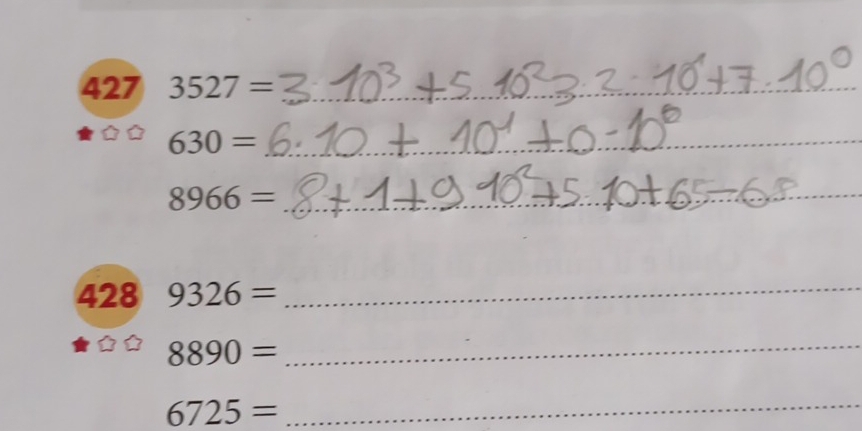 427 3527 = 3·10³ + 5 10² 3·2·10¹ + 7·10⁰
630 = 6·10 + 10¹ + 0-10⁰
8966 = 8 + 1 + 9 10² + 5·10 + 65 - 68
428 9326 =
8890 =
6725 =